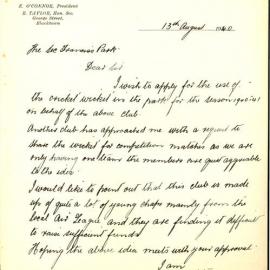 E. O'CONNOR, President
R. TAYLOR, Hon. Sec.
George Street,
Blacktown
13th August 1940
The Sec Francis Park
Dear Sir
I wish to apply for the use of
the cricket wicket in the park for the season 1940/41
on behalf of the above club.
Another club has approached me with a request to
share the wicket for competition matches as we are
only having one team the members are quite agreeable
to the idea.
I would like to point out that this club is made
up of quite a lot of young chaps mainly from the
local Air League and they are finding it difficult
to raise sufficient funds
Hoping the above idea meets with your approval
I am